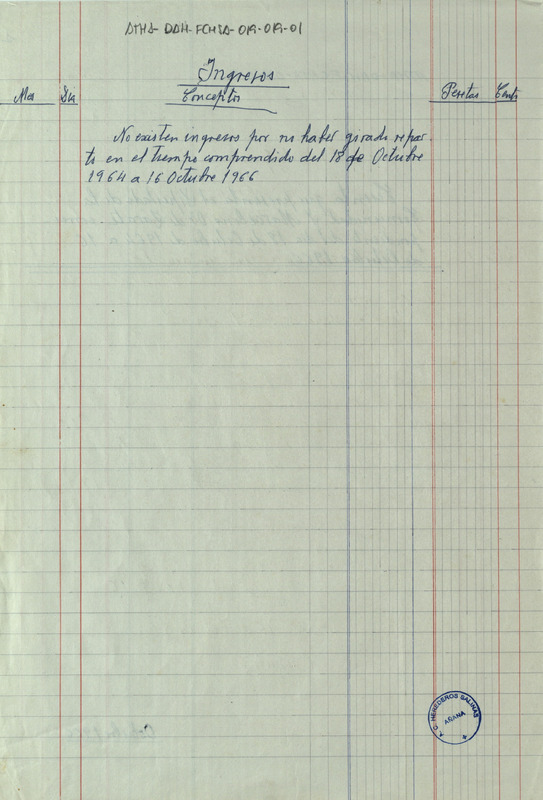 ATHA-DAH-FCHSA-019-019-01
Ingresos
Mes Dia Conceptos Pesetas Cents
No existen ingresos por no haber girado repar-
to en el tiempo comprendido del 18 de Octubre
1964 a 16 Octubre 1966
HEREDEROS SALINAS
AÑANA